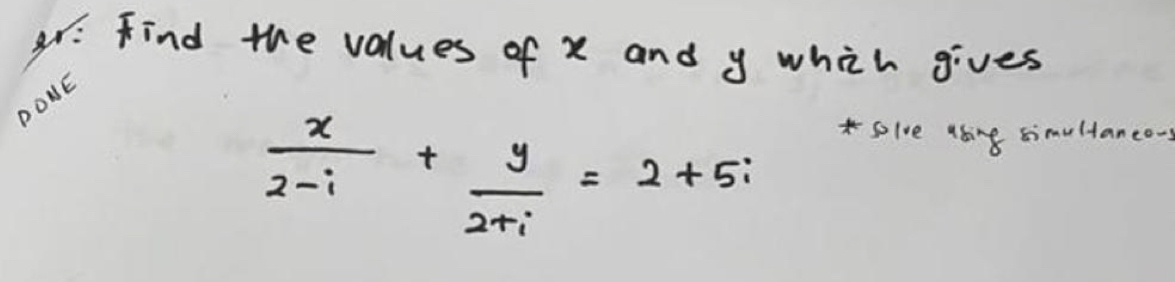 ex: Find the values of x and y which gives
DONE
* solve using simultaneous
x/(2-i) + y/(2+i) = 2+5i